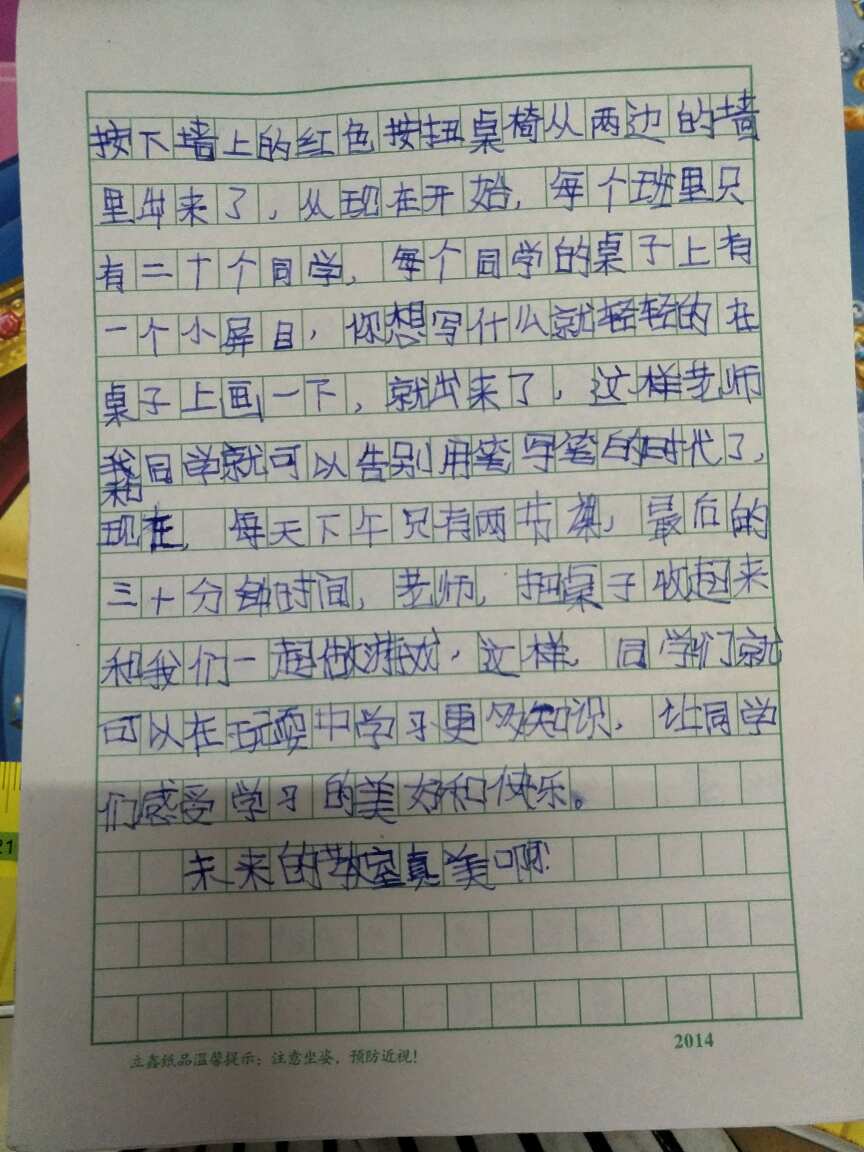 按下墙上的红色按扭桌椅从两边的墙
里出来了，从现在开始，每个班里只
有二十个同学，每个同学的桌子上有
一个小屏目，你想写什么就轻轻的在
桌子上画一下，就出来了，这样老师
和同学就可以告别用笔写笔的时代了，
现在，每天下午只有两节课，最后的
三十分钟时间，老师，把桌子收起来
和我们一起做游戏，这样，同学们就
可以在玩耍中学习更多知识，让同学
们感受学习的美好和快乐。
未来的教室真美啊！
立鑫纸品温馨提示：注意坐姿，预防近视！
2014
21